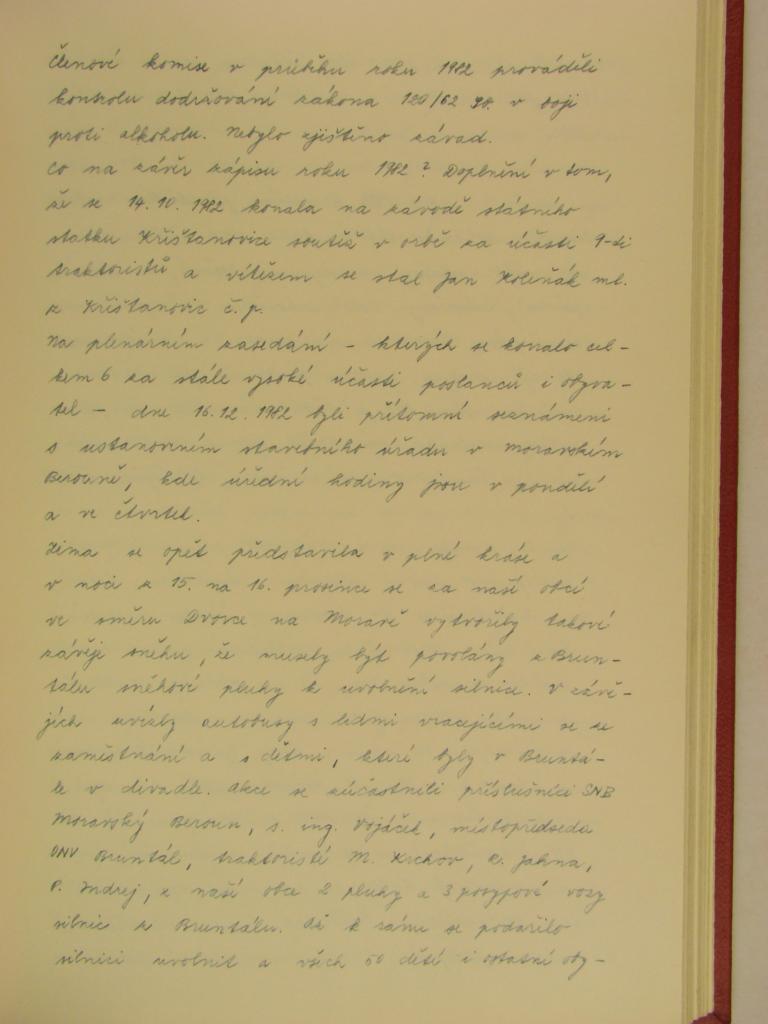 Členové komise v průběhu roku 1982 prováděli
kontrolu dodržování zákona 120/62 Sb. v boji
proti alkoholu. Nebylo zjištěno závad.
Co na závěr zápisu roku 1982? Doplnění v tom,
že se 14.10.1982 konala na závodě státního
statku Křišťanovice soutěž v orbě za účasti 9-ti
traktoristů a vítězem se stal Jan Holeňák ml.
z Křišťanovic č.p.
Na plenárním zasedání – kterých se konalo cel-
kem 6 za stále vysoké účasti poslanců i obyva-
tel – dne 16.12.1982 byli přítomní seznámeni
s ustanovením stavebního úřadu v Moravském
Berouně, kde úřední hodiny jsou v pondělí
a ve čtvrtek.
Zima se opět představila v plné kráse a
v noci z 15. na 16. prosince se za naší obcí
ve směru Dvorce na Moravě vytvořily takové
závěje sněhu, že musely být povolány z Brun-
tálu sněhové pluhy k uvolnění silnice. V závě-
jích uvízly autobusy s lidmi vracejícími se ze
zaměstnání a s dětmi, které byly v Bruntá-
le v divadle. Akce se zúčastnili příslušníci SNB
Moravský Beroun, s. ing. Vojáček, místopředseda
ONV Bruntál, traktoristé M. Krchov, R. Jahna,
P. Indrej, z naší obce 2 pluhy a 3 posypové vozy
silnic z Bruntálu. Až k ránu se podařilo
silnici uvolnit a všech 50 dětí i ostatní oby-